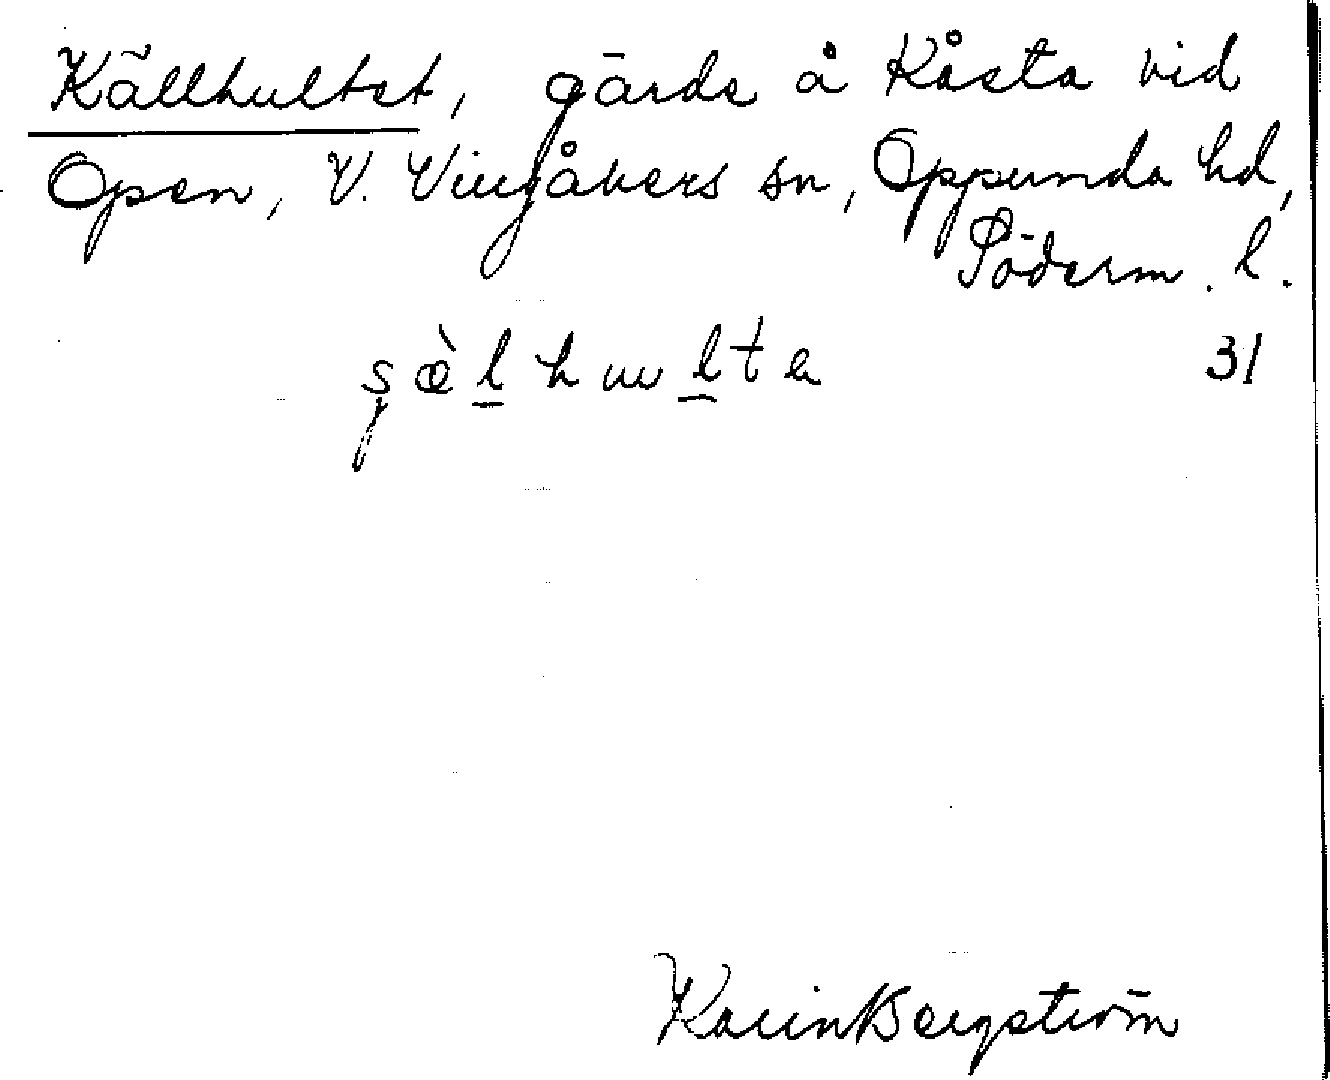 Källhultet, gärde å Kåsta vid
Open, V. Vingåkers sn, Oppunda hd,
Söderm. l.
31
Karin Bergström